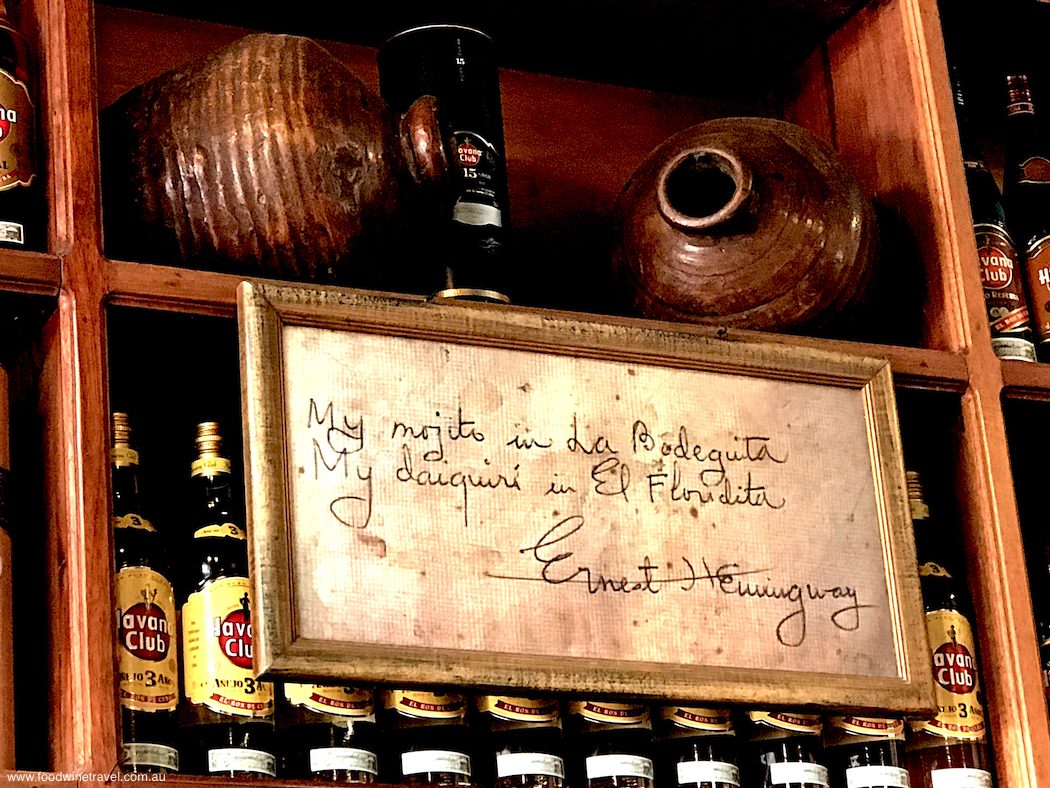 15
Havana
Club
15 AÑOS
vana
Club
My mojito in La Bodeguita
My daiquirí in El Floridita
Ernest Hemingway
Havana
Club
AÑEJO 3 AÑOS
EL RON DE CUBA
Hava
Clu
AÑEJO 3
avana
Club
AÑEJO 3
www.foodwinetravel.com.au